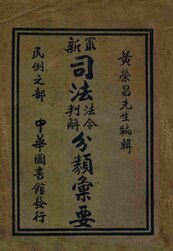 黃榮昌先生編輯
最新
司法法令判解分類彙要
民例之部
中華圖書館發行